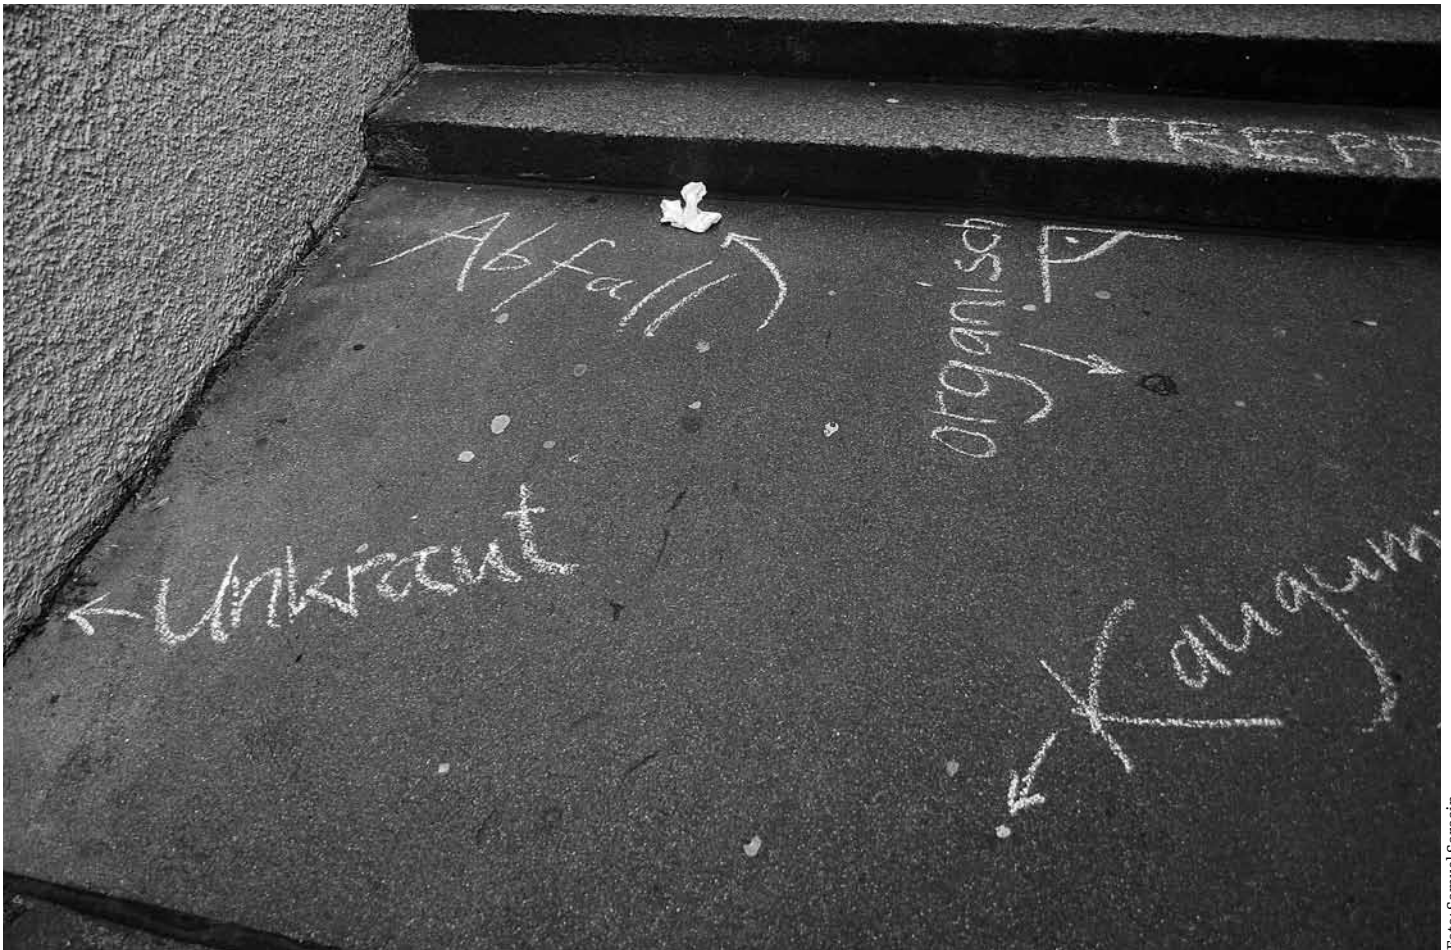 TREPP
Abfall
organisch
Unkraut
Kaugum